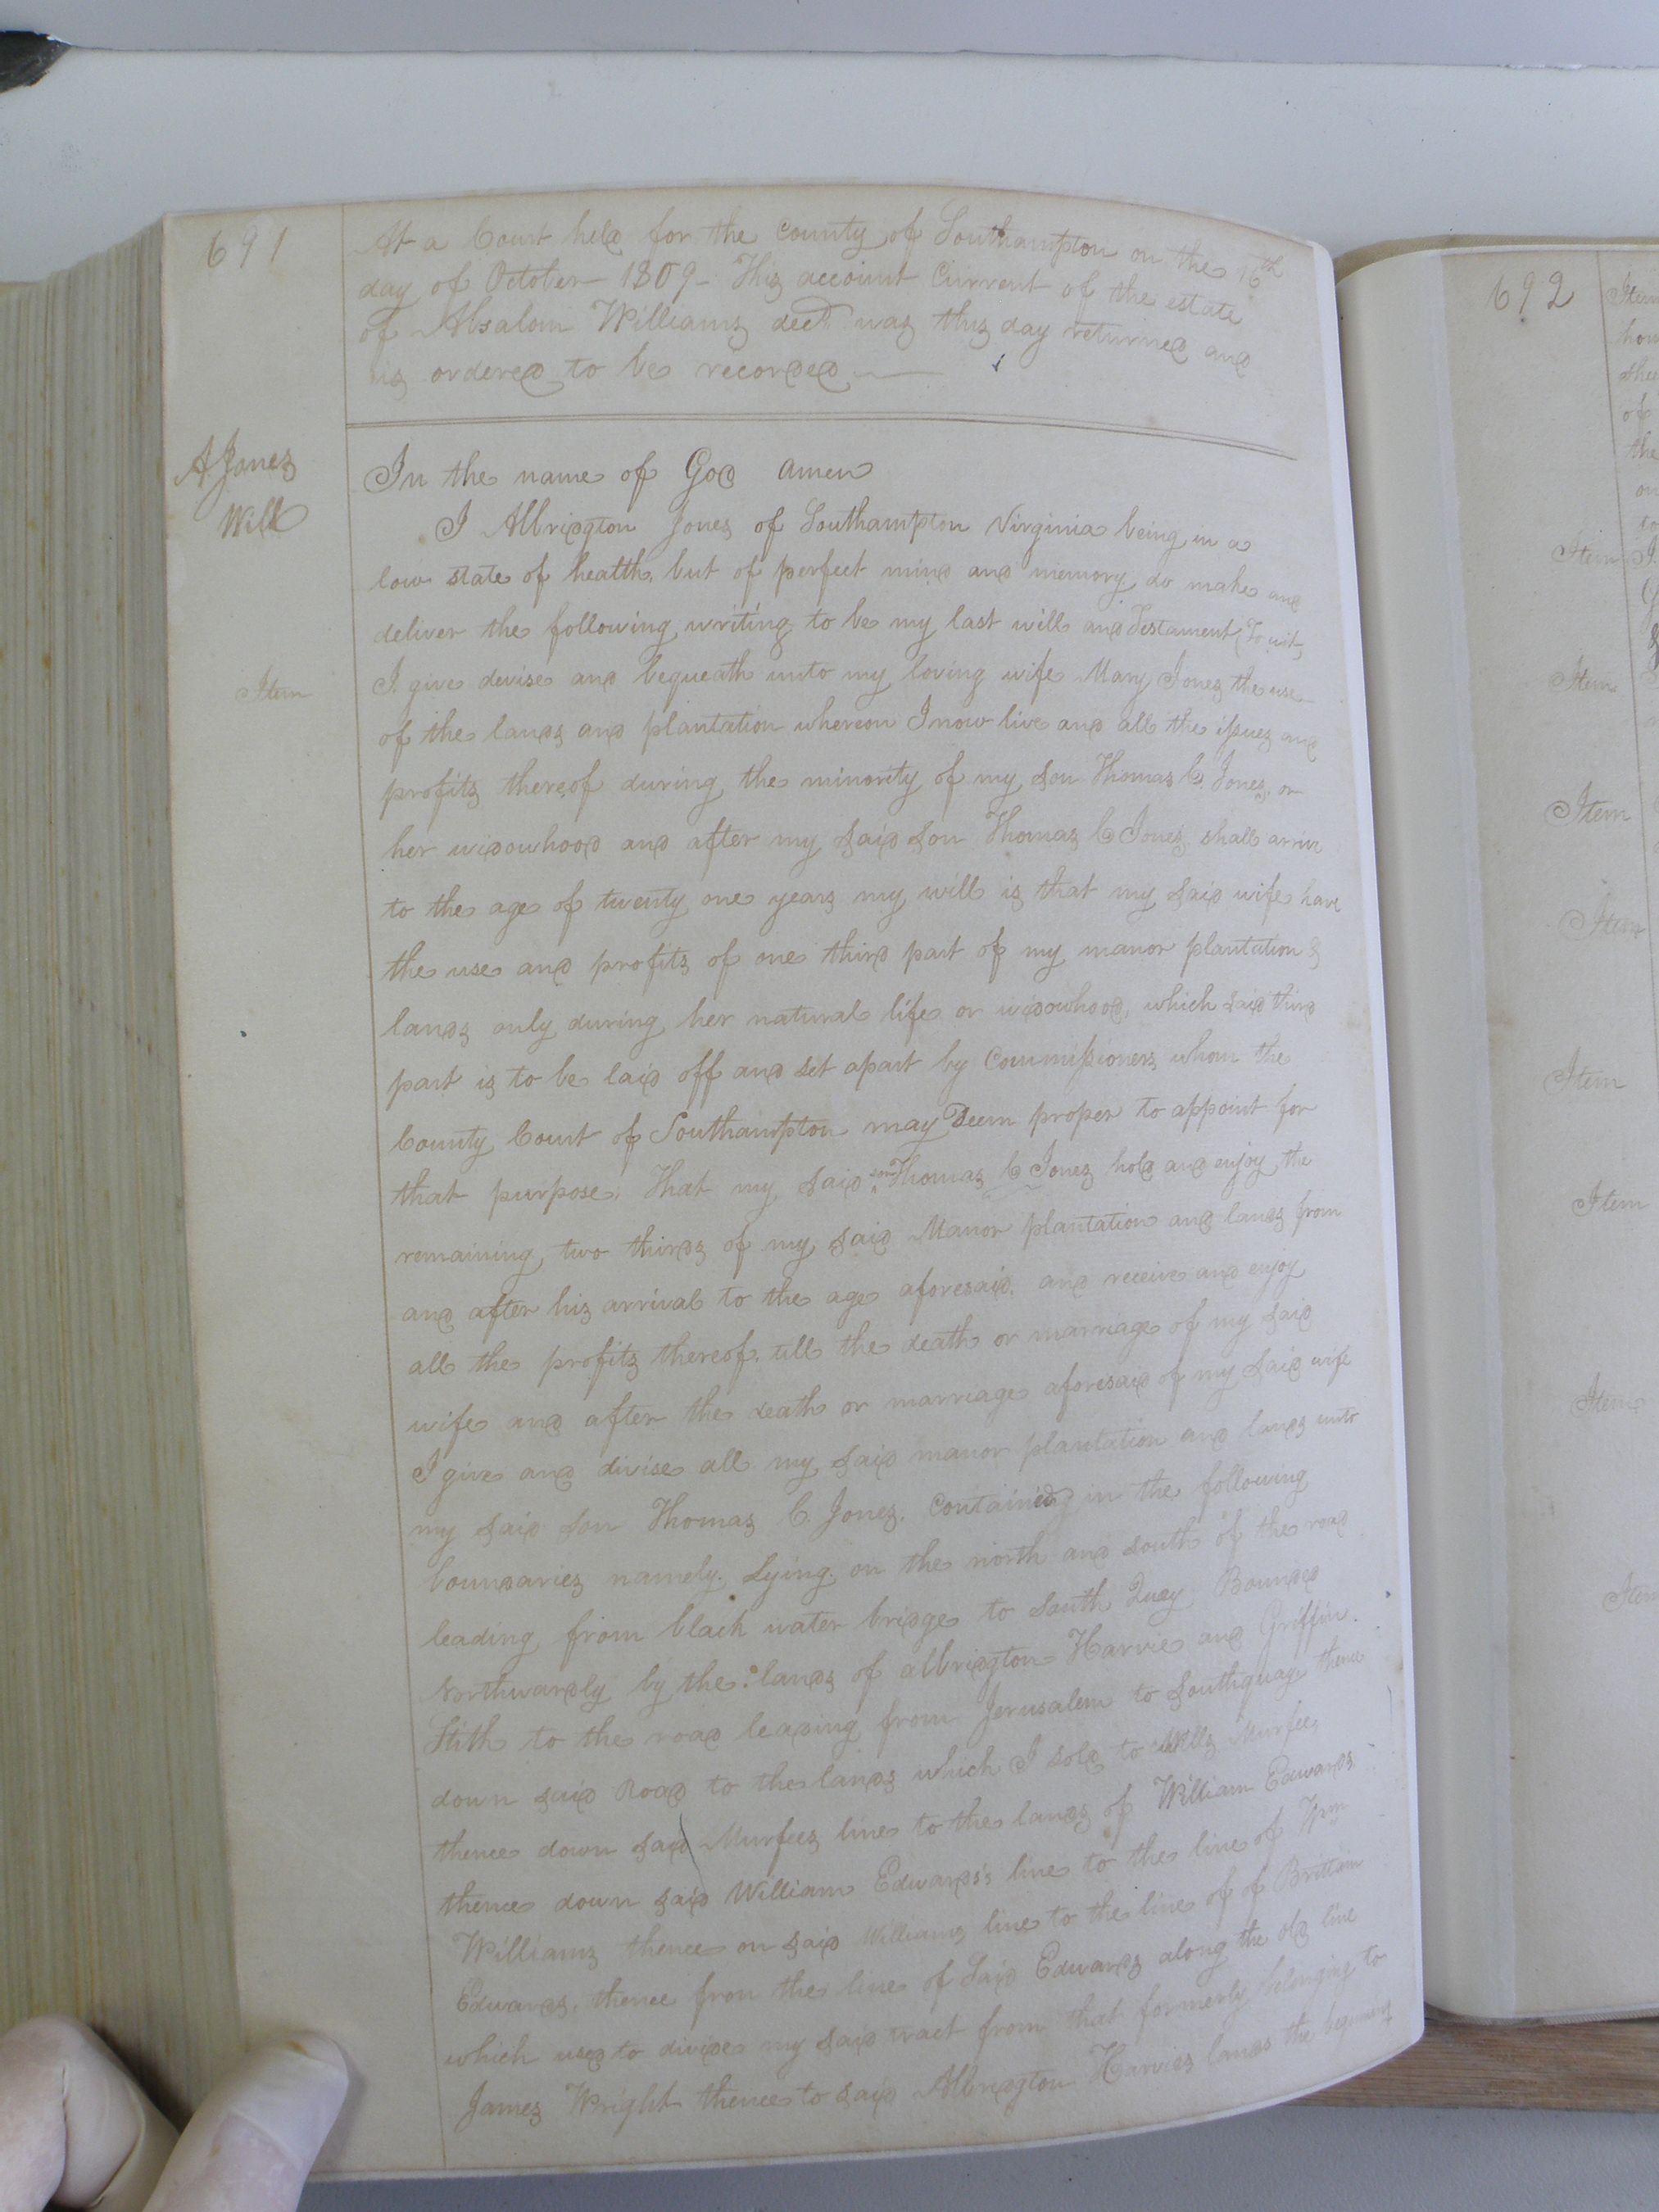 691
At a Court held for the County of Southampton on the 16th
day of October 1809 - This account Current of the estate
of Absalom Williams decd was this day returned and
is ordered to be recorded
A Jones
Will
In the name of God Amen
I Albridgton Jones of Southampton Virginia being in a
low state of health, but of perfect mind and memory, do make and
deliver the following writing to be my last will and Testament (To wit,
Item
I give devise and bequeath unto my loving wife Mary Jones the use
of the lands and plantation whereon I now live and all the issues and
profits thereof during the minority of my son Thomas C. Jones, or
her widowhood and after my said son Thomas C Jones shall arrive
to the age of twenty one years my will is that my said wife have
the use and profits of one third part of my manor plantation &
lands only during her natural life or widowhood, which said third
part is to be laid off and set apart by Commissioners whom the
County Court of Southampton may Deem proper to appoint for
that purpose. That my said son Thomas C Jones hold and enjoy the
remaining two thirds of my said Manor plantation and lands from
and after his arrival to the age aforesaid, and receive and enjoy
all the profits thereof. till the death or marriage of my said
wife and after the death or marriage aforesaid of my said wife
I give and divise all my said manor plantation and lands unto
my said son Thomas C. Jones. Contained in the following
boundaries namely. Lying on the north and south of the road
leading from black water bridge to South Quay Bounded
Northwardly by the lands of albridgton Harvie and Griffin
Stith to the road leading from Jerusalem to Southquay thence
down said Road to the lands which I sold to Wills Murfee,
thence down said Murfees line to the lands of William Edwards
thence down said William Edwards's line to the line of Wm
Williams thence on said Williams line to the line of of Brittain
Edwards, thence from the line of said Edwards along the old line
which used to divide my said tract from that formerly belonging to
James Wright thence to said Albridgton Harvies lands the beginning
692
Item
the
Item
Item
Item
Item
Item
Item
Item
Item